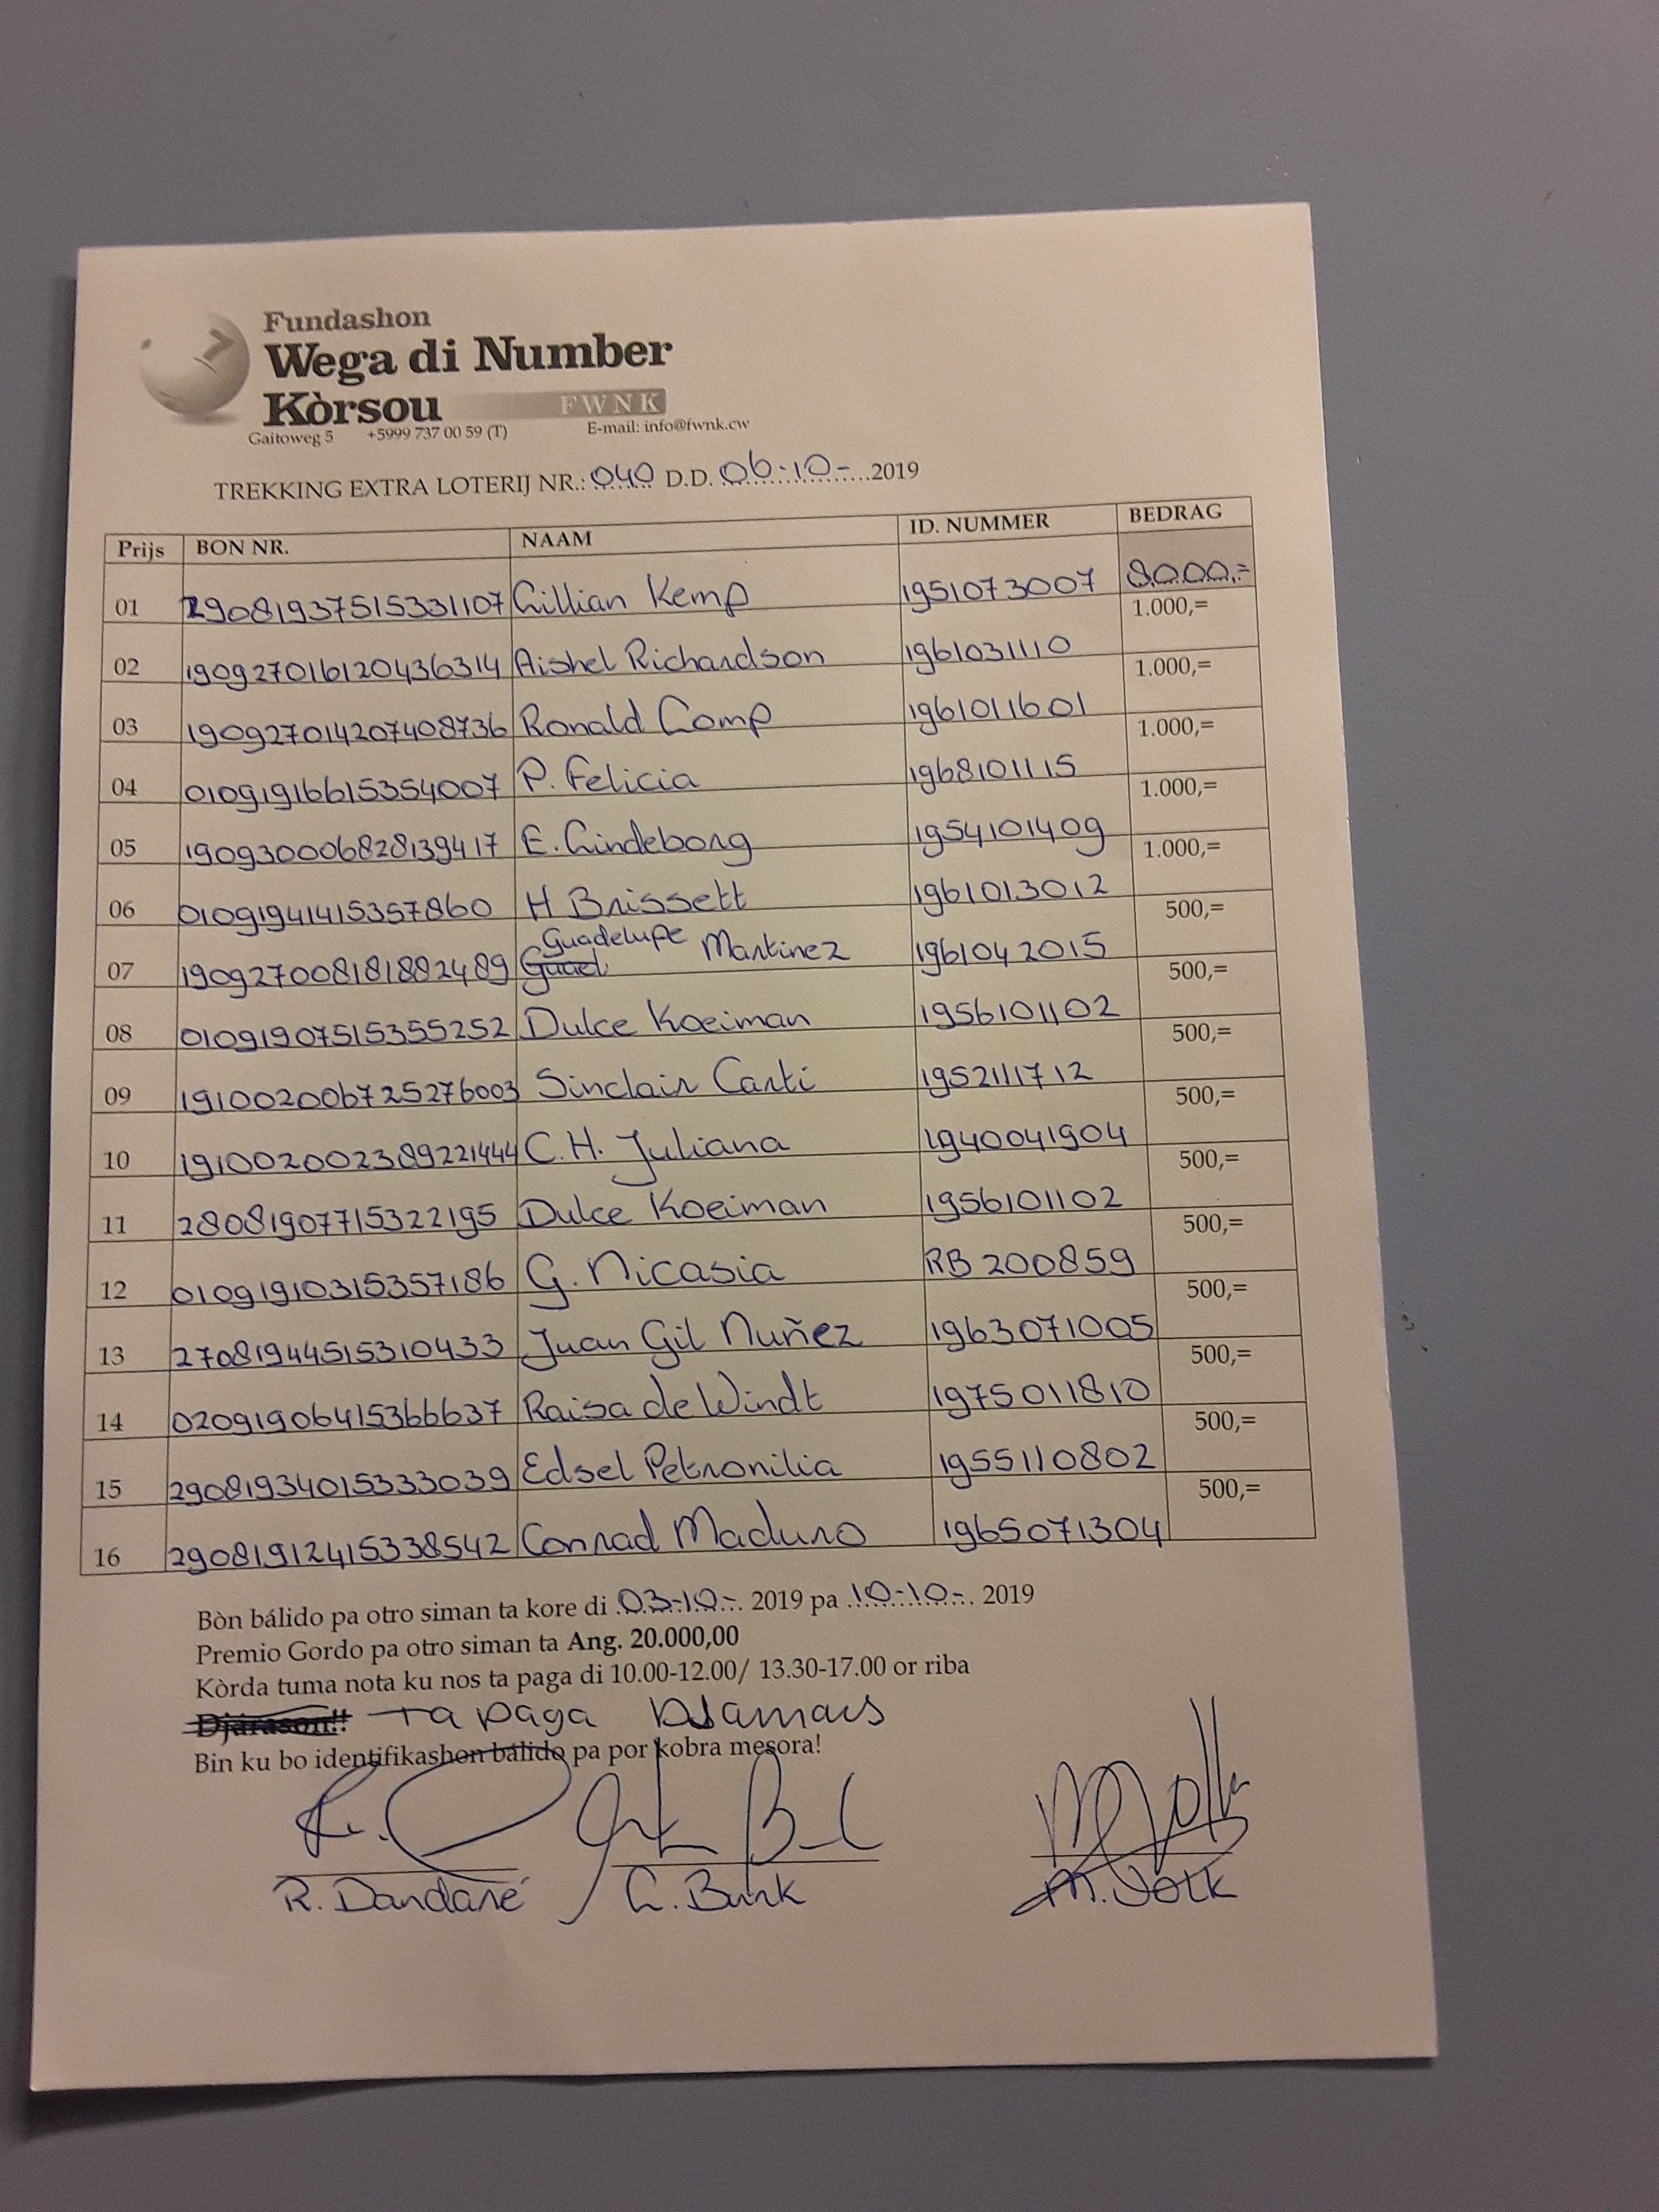 Fundashon
Wega di Number
Kòrsou FWNK
Gaitoweg 5 +5999 737 00 59 (T) E-mail: info@fwnk.cw
TREKKING EXTRA LOTERIJ NR.: 040 D.D. 06-10-2019
Prijs BON NR. NAAM ID. NUMMER BEDRAG
01 29081937515331107 Gillian Kemp 1951073007 8.000,=
02 190927016120436314 Aishel Richardson 1961031110 1.000,=
03 190927014207408736 Ronald Comp 1961011601 1.000,=
04 01091916615354007 P. Felicia 1968101115 1.000,=
05 190930006828139417 E. Lindeborg 1954101409 1.000,=
06 01091941415357860 H Brissett 1961013012 1.000,=
07 190927008181882489 Guadelupe Martinez 1961042015 500,=
08 01091907515355252 Dulce Koeiman 1956101102 500,=
09 191002006725276003 Sinclair Carti 1952111712 500,=
10 191002002389221444 C.H. Juliana 1940041904 500,=
11 28081907715322195 Dulce Koeiman 1956101102 500,=
12 01091910315357186 G. Nicasia RB 200859 500,=
13 27081944515310433 Juan Gil Nuñez 1963071005 500,=
14 02091906415366637 Raisa de Windt 1975011810 500,=
15 29081934015333039 Edsel Petronilia 1955110802 500,=
16 29081912415338542 Conrad Maduro 1965071304 500,=
Bòn bálido pa otro siman ta kore di 03-10- 2019 pa 10-10- 2019
Premio Gordo pa otro siman ta Ang. 20.000,00
Kòrda tuma nota ku nos ta paga di 10.00-12.00/ 13.30-17.00 or riba
Djárason!! Ta paga Djamars
Bin ku bo identifikashon bálido pa por kobra mesora!
R. Dandaré